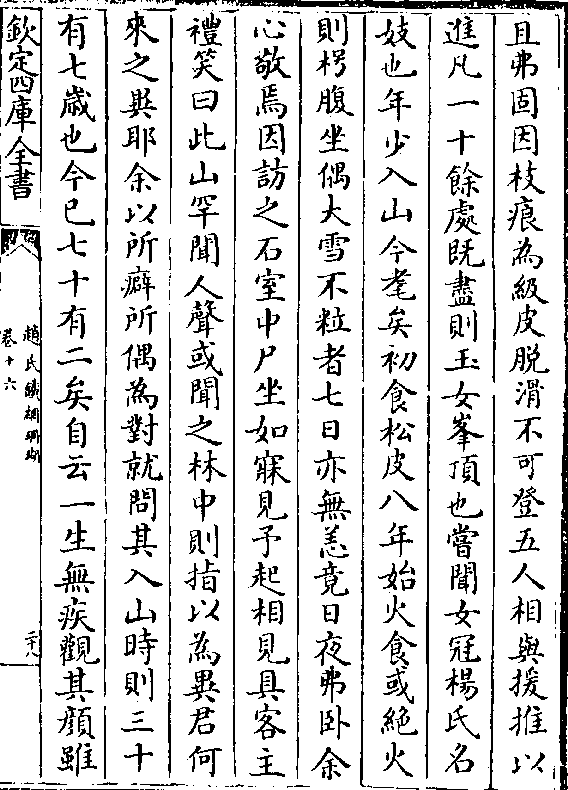 且弗固因枝痕為級皮脱滑不可登五人相與援推以
進凡一十餘處既盡則玉女峯頂也嘗聞女冠楊氏名
妓也年少入山今耄矣初食松皮八年始火食或絶火
則枵腹坐偶大雪不粒者七日亦無恙竟日夜弗卧余
心敬焉因訪之石室中尸坐如寐見予起相見具客主
禮笑曰此山罕聞人聲或聞之林中則指以為異君何
來之異耶余以所癖所偶為對就問其入山時則三十
有七歳也今已七十有二矣自云一生無疾觀其顔雖
欽定四庫全書
趙氏鐵網珊瑚
卷十六